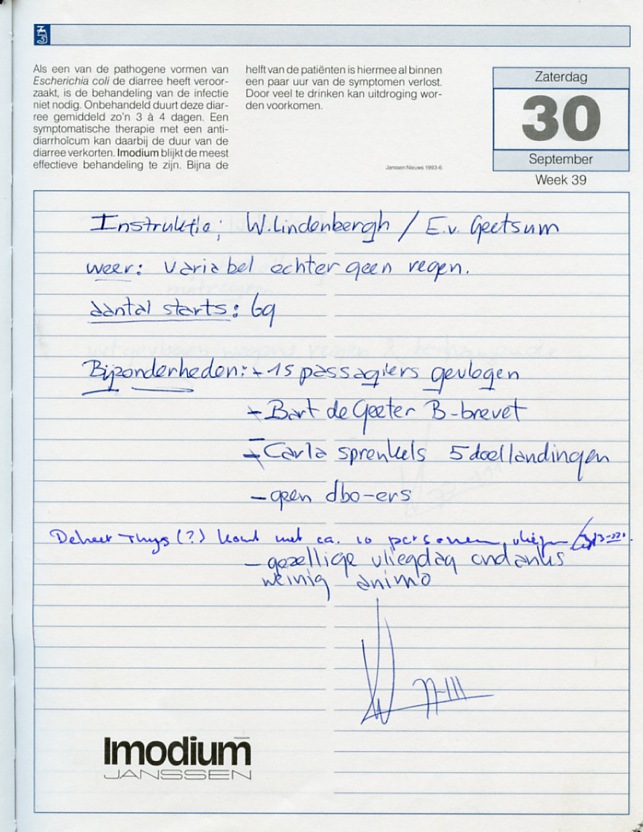 Als een van de pathogene vormen van
Escherichia coli de diarree heeft veroor-
zaakt, is de behandeling van de infectie
niet nodig. Onbehandeld duurt deze diar-
ree gemiddeld zo'n 3 à 4 dagen. Een
symptomatische therapie met een anti-
diarrhoicum kan daarbij de duur van de
diarree verkorten. Imodium blijkt de meest
effectieve behandeling te zijn. Bijna de
helft van de patiënten is hiermee al binnen
een paar uur van de symptomen verlost.
Door veel te drinken kan uitdroging wor-
den voorkomen.
Janssen Nieuws 1993-6
Zaterdag
30
September
Week 39
Instruktie; W.Lindenbergh / E.v. Geetsum
weer: variabel echter geen regen.
aantal starts: 69
Bijzonderheden: - 15 passagiers gevlogen
- Bart de Geeter B-brevet
- Carla sprenkels 5 doellandingen
- geen dbo-ers
De heer Thys (?) komt met ca. 10 personen vliegen
- gezellige vliegdag ondanks
weinig animo
Imodium
JANSSEN